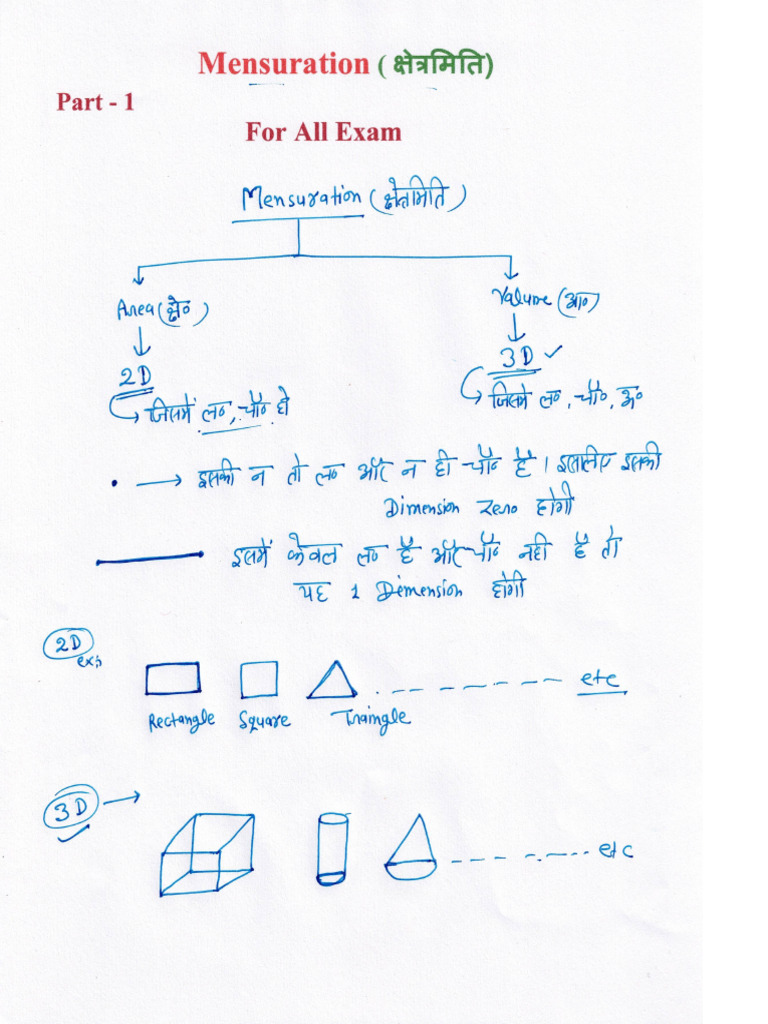 Mensuration ( क्षेत्रमिति)
Part - 1
For All Exam
Mensuration (क्षेत्रमिति)
Area (क्षे०)
Valume (आ०)
2D
3D
जिसमें ल०, चौ० हो
जिसमें ल०, चौ०, ऊ०
इसकी न तो ल० और न ही चौ० है। इसलिए इसकी
Dimension Zero होगी
इसमें केवल ल० है और चौ० नही है तो
यह 1 Dimension होगी
2D
ex:
etc
Rectangle Square Traingle
3D
etc